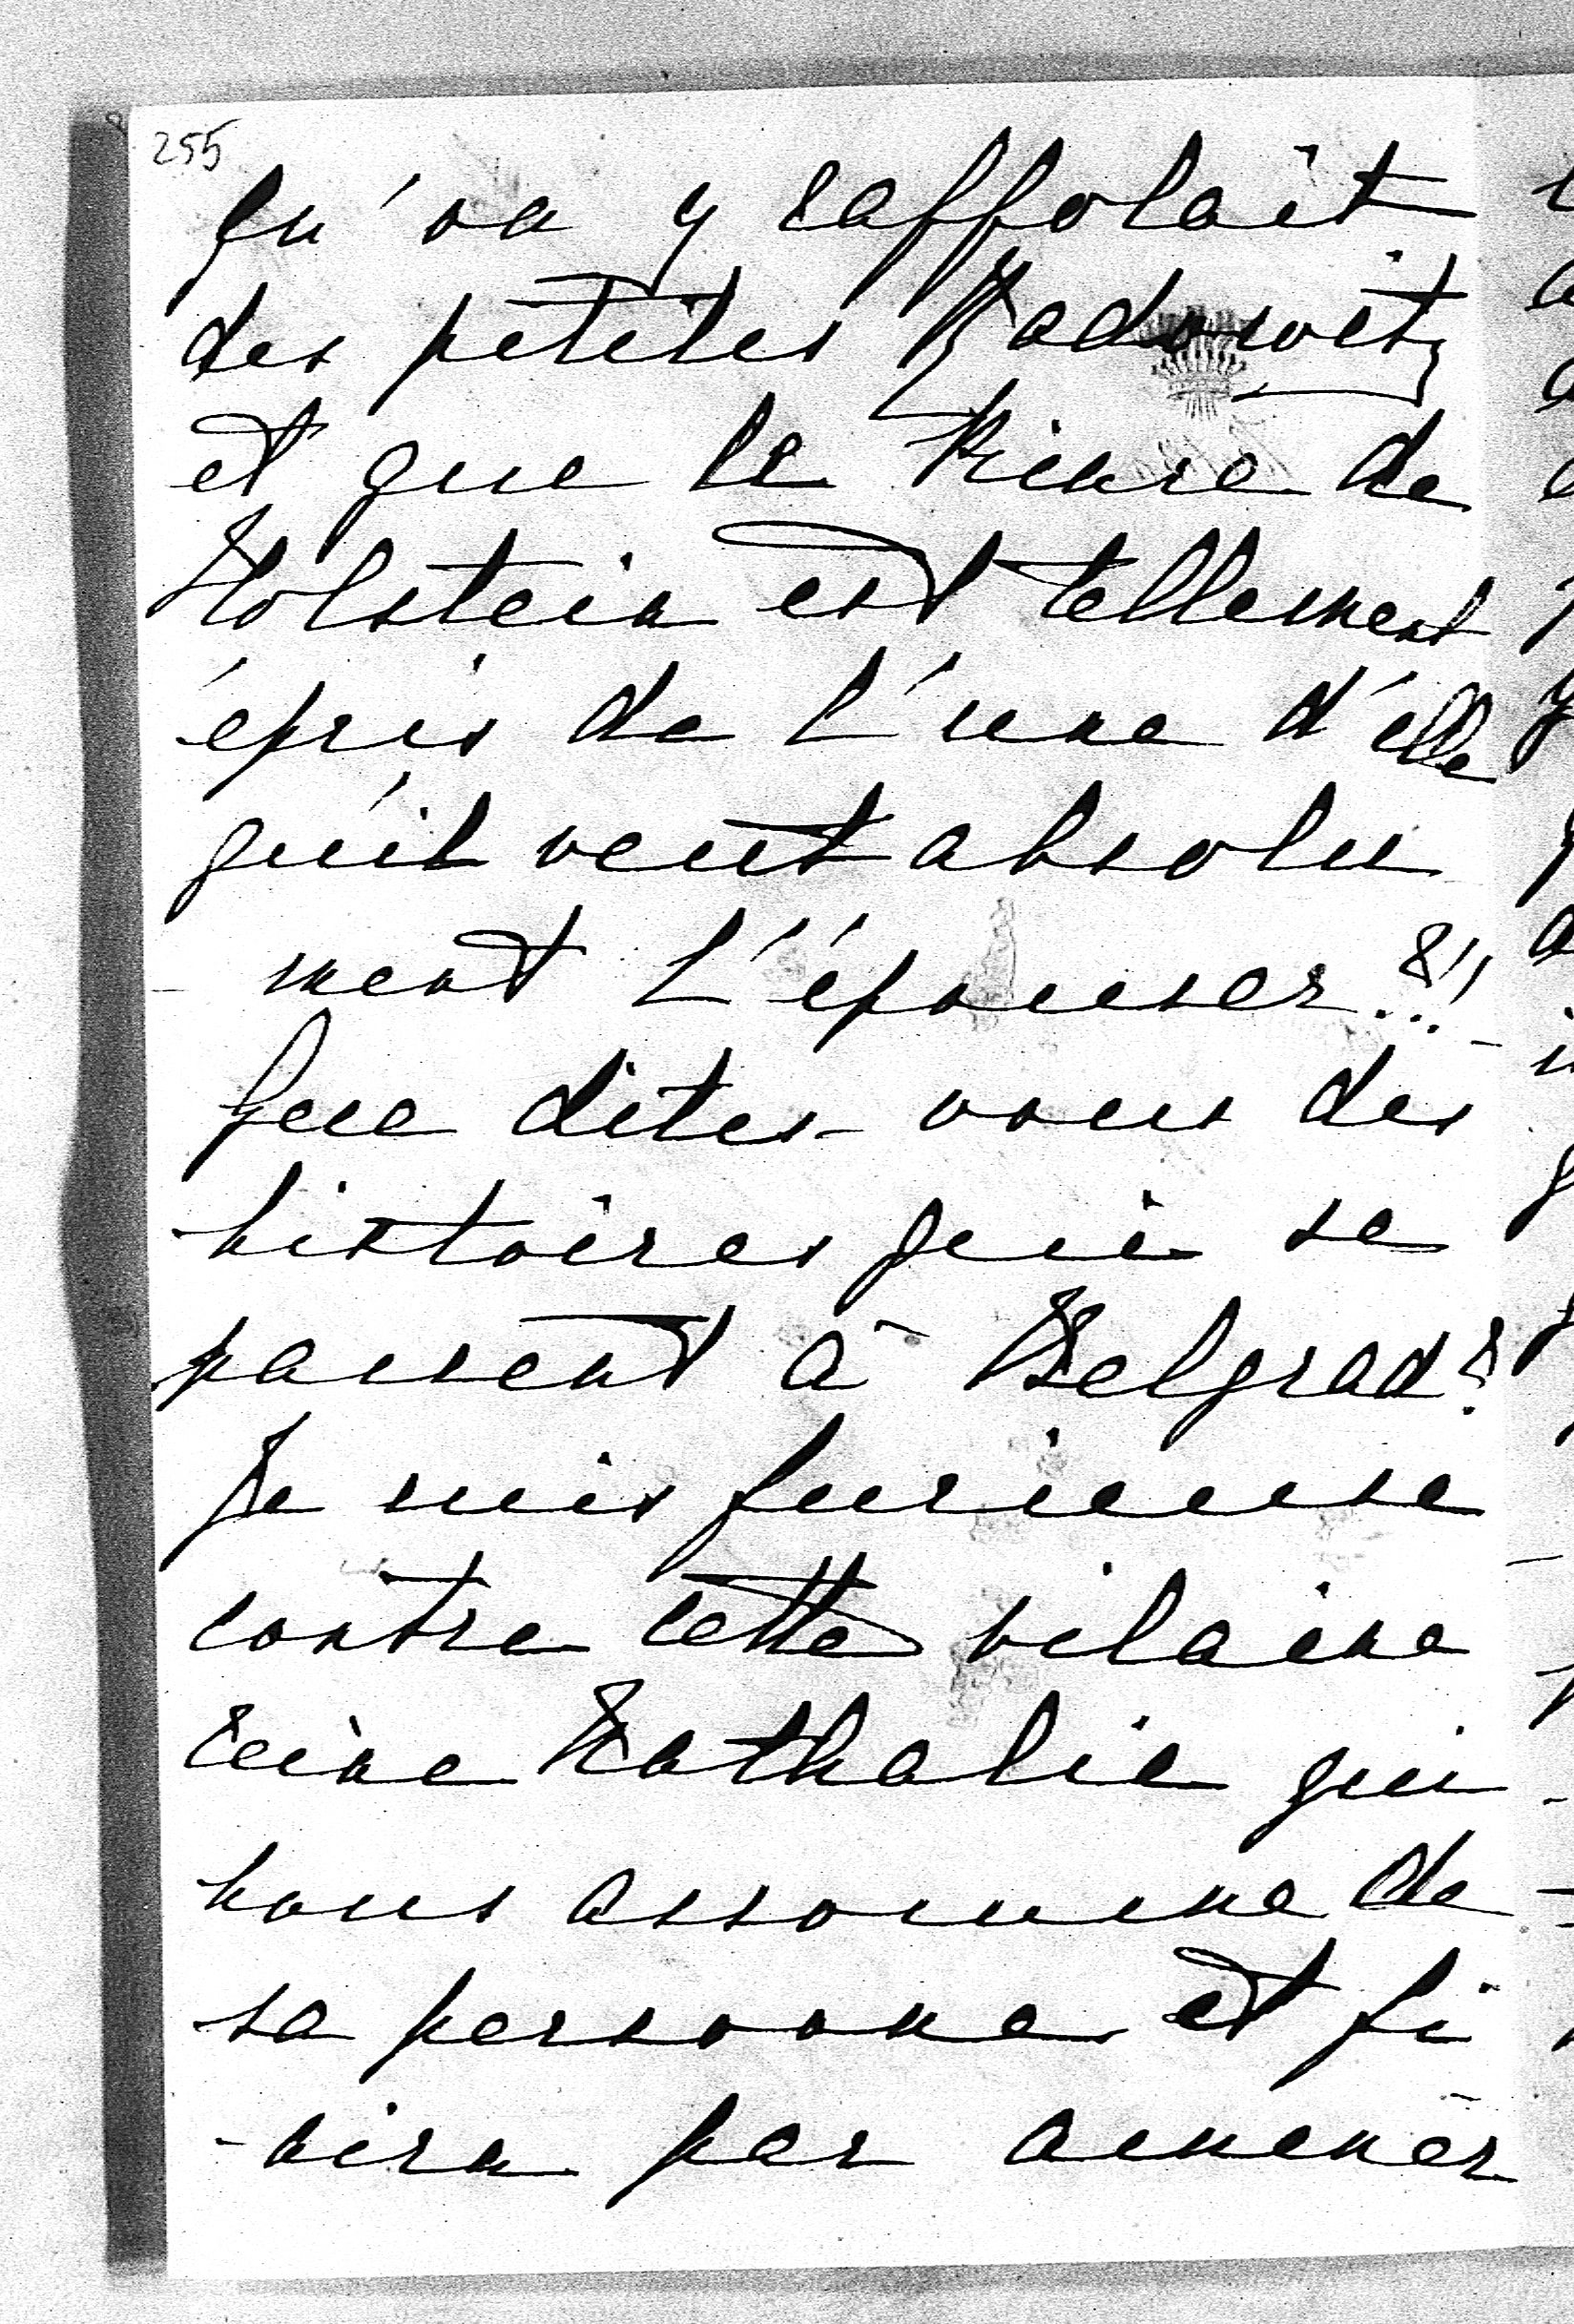 255
Qu'on y raffolait
des petites Radowitz
et que le Prince de
Holstein est tellement
épris de l'une d'elle
qu'il veut absolu
- ment l'épouser?!! -
Que dites-vous des
histoires qui se
passent à Belgrad?
Je suis furieuse
contre cette vilaine
reine Nathalie qui
nous assomme de
sa personne et fi
- nira par amener